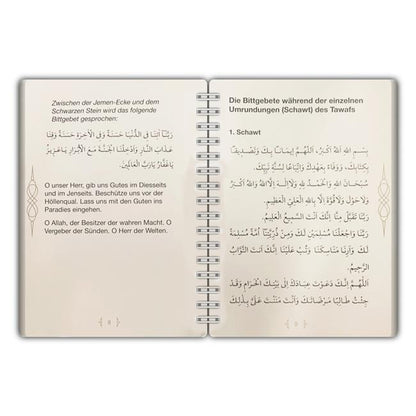 Zwischen der Jemen-Ecke und dem
Schwarzen Stein wird das folgende
Bittgebet gesprochen:
رَبَّنَا آتِنَا فِي الدُّنْيَا حَسَنَةً وَفِي الْآخِرَةِ حَسَنَةً وَقِنَا
عَذَابَ النَّارِ وَأَدْخِلْنَا الْجَنَّةَ مَعَ الْأَبْرَارِ يَا عَزِيزُ
يَا غَفَّارُ يَا رَبَّ الْعَالَمِينَ.
O unser Herr, gib uns Gutes im Diesseits
und im Jenseits. Beschütze uns vor der
Höllenqual. Lass uns mit den Guten ins
Paradies eingehen.
O Allah, der Besitzer der wahren Macht. O
Vergeber der Sünden. O Herr der Welten.
Die Bittgebete während der einzelnen
Umrundungen (Schawt) des Tawafs
1. Schawt
بِسْمِ اللهِ اَللهُ أَكْبَرُ، اَللَّهُمَّ إِيمَانًا بِكَ وَتَصْدِيقًا
بِكِتَابِكَ، وَوَفَاءً بِعَهْدِكَ وَاتِّبَاعًا لِسُنَّةِ نَبِيِّكَ.
سُبْحَانَ اللهِ وَالْحَمْدُ لِلهِ وَلَا إِلَهَ إِلَّا اللهُ وَاللهُ أَكْبَرُ
وَلَا حَوْلَ وَلَا قُوَّةَ إِلَّا بِاللهِ الْعَلِيِّ الْعَظِيمِ.
رَبَّنَا تَقَبَّلْ مِنَّا إِنَّكَ أَنْتَ السَّمِيعُ الْعَلِيمُ.
رَبَّنَا وَاجْعَلْنَا مُسْلِمَيْنِ لَكَ وَمِنْ ذُرِّيَّتِنَا أُمَّةً مُسْلِمَةً
لَكَ وَأَرِنَا مَنَاسِكَنَا وَتُبْ عَلَيْنَا إِنَّكَ أَنْتَ التَّوَّابُ
الرَّحِيمُ.
اَللَّهُمَّ إِنَّكَ دَعَوْتَ عِبَادَكَ إِلَى بَيْتِكَ الْحَرَامِ وَقَدْ
جِئْتُ طَالِبًا مَرْضَاتَكَ وَأَنْتَ مَنَنْتَ عَلَيَّ بِذَلِكَ